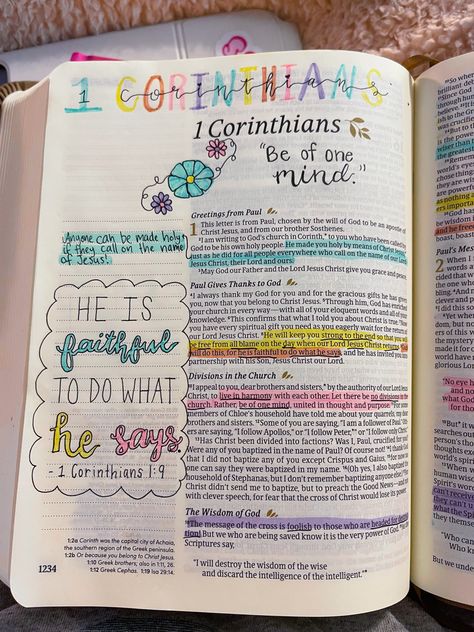 1 CORINTHIANS
Corinthians
1 Corinthians
"Be of one
mind."
Greetings from Paul
1 This letter is from Paul, chosen by the will of God to be an apostle of
Christ Jesus, and from our brother Sosthenes.
²I am writing to God's church in Corinth,* to you who have been called
by God to be his own holy people. He made you holy by means of Christ Jesus,*
just as he did for all people everywhere who call on the name of our Lord
Jesus Christ, their Lord and ours.
³May God our Father and the Lord Jesus Christ give you grace and peace.
Anyone can be made holy
if they call on the name
of Jesus!
Paul Gives Thanks to God
⁴I always thank my God for you and for the gracious gifts he has given
you, now that you belong to Christ Jesus. ⁵Through him, God has enriched
your church in every way—with all of your eloquent words and all of your
knowledge. ⁶This confirms that what I told you about Christ is true. ⁷Now
you have every spiritual gift you need as you eagerly wait for the return of
our Lord Jesus Christ. ⁸He will keep you strong to the end so that you will
be free from all blame on the day when our Lord Jesus Christ returns. ⁹God
will do this, for he is faithful to do what he says, and he has invited you into
partnership with his Son, Jesus Christ our Lord.
HE IS
faithful
TO DO WHAT
he says.
- 1 Corinthians 1:9
Divisions in the Church
¹⁰I appeal to you, dear brothers and sisters,* by the authority of our Lord Jesus
Christ, to live in harmony with each other. Let there be no divisions in the
church. Rather, be of one mind, united in thought and purpose. ¹¹For some
members of Chloe's household have told me about your quarrels, my dear
brothers and sisters. ¹²Some of you are saying, "I am a follower of Paul." Others
are saying, "I follow Apollos," or "I follow Peter,*" or "I follow only Christ."
¹³Has Christ been divided into factions? Was I, Paul, crucified for you?
Were any of you baptized in the name of Paul? Of course not! ¹⁴I thank God
that I did not baptize any of you except Crispus and Gaius, ¹⁵for now no
one can say they were baptized in my name. ¹⁶(Oh yes, I also baptized the
household of Stephanas, but I don't remember baptizing anyone else.) ¹⁷For
Christ didn't send me to baptize, but to preach the Good News—and not
with clever speech, for fear that the cross of Christ would lose its power.
The Wisdom of God
¹⁸The message of the cross is foolish to those who are headed for destruc-
tion! But we who are being saved know it is the very power of God. ¹⁹As the
Scriptures say,
"I will destroy the wisdom of the wise
and discard the intelligence of the intelligent."*
1:2a Corinth was the capital city of Achaia,
the southern region of the Greek peninsula.
1:2b Or because you belong to Christ Jesus.
1:10 Greek brothers; also in 1:11, 26.
1:12 Greek Cephas. 1:19 Isa 29:14.
1234